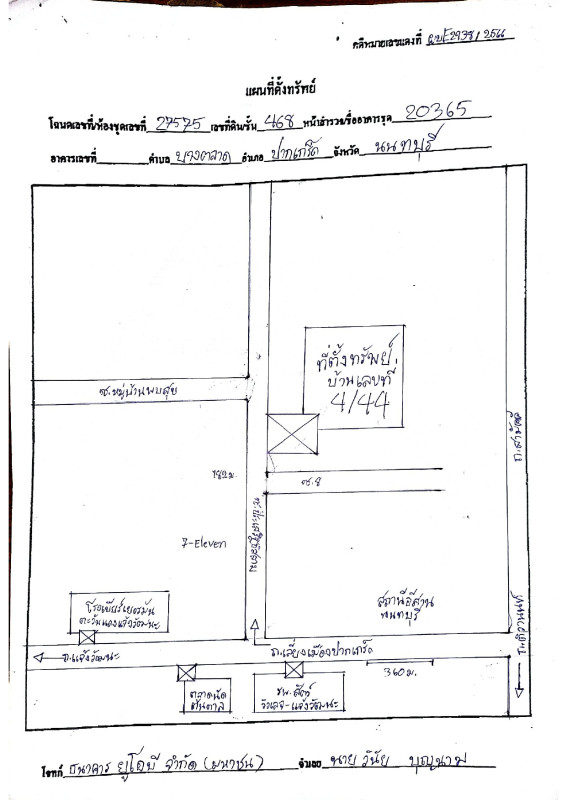 คดีหมายเลขแดงที่ ผบE2938/2566
แผนที่ตั้งทรัพย์
โฉนดเลขที่/ห้องชุดเลขที่ 27575 เลขที่ดิน/ชั้น 468 หน้าสำรวจ/ชื่ออาคารชุด 20365
อาคารเลขที่ ตำบล บางตลาด อำเภอ ปากเกร็ด จังหวัด นนทบุรี
ที่ตั้งทรัพย์
บ้านเลขที่
4/44
ซ.หมู่บ้านพบสุข
ถ.สามัคคี
182 ม.
ซ.8
7-Eleven
โรงเบียร์เยอรมัน
ตะวันแดงแจ้งวัฒนะ
สถานีอีสาน
นนทบุรี
ถ.ติวานนท์
ถ.แจ้งวัฒนะ
ถ.เลี่ยงเมืองปากเกร็ด
360 ม.
ตลาดนัด
ต้นตาล
รพ.สัตว์
วิเลจ-แจ้งวัฒนะ
โจทก์ ธนาคาร ยูโอบี จำกัด (มหาชน) จำเลย นาย วินัย บุญนาม